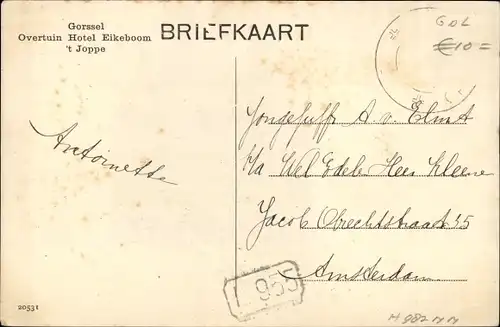 Gorssel
Overtuin Hotel Eikeboom
't Joppe
BRIEFKAART
GOL
€10=
Antoinette
Jongejuffr A. v. Elmst
p/a Wel Edele Heer Kleene
Jacob Obrechtstraat 35
Amsterdam
L 955
20531
M 882 MM